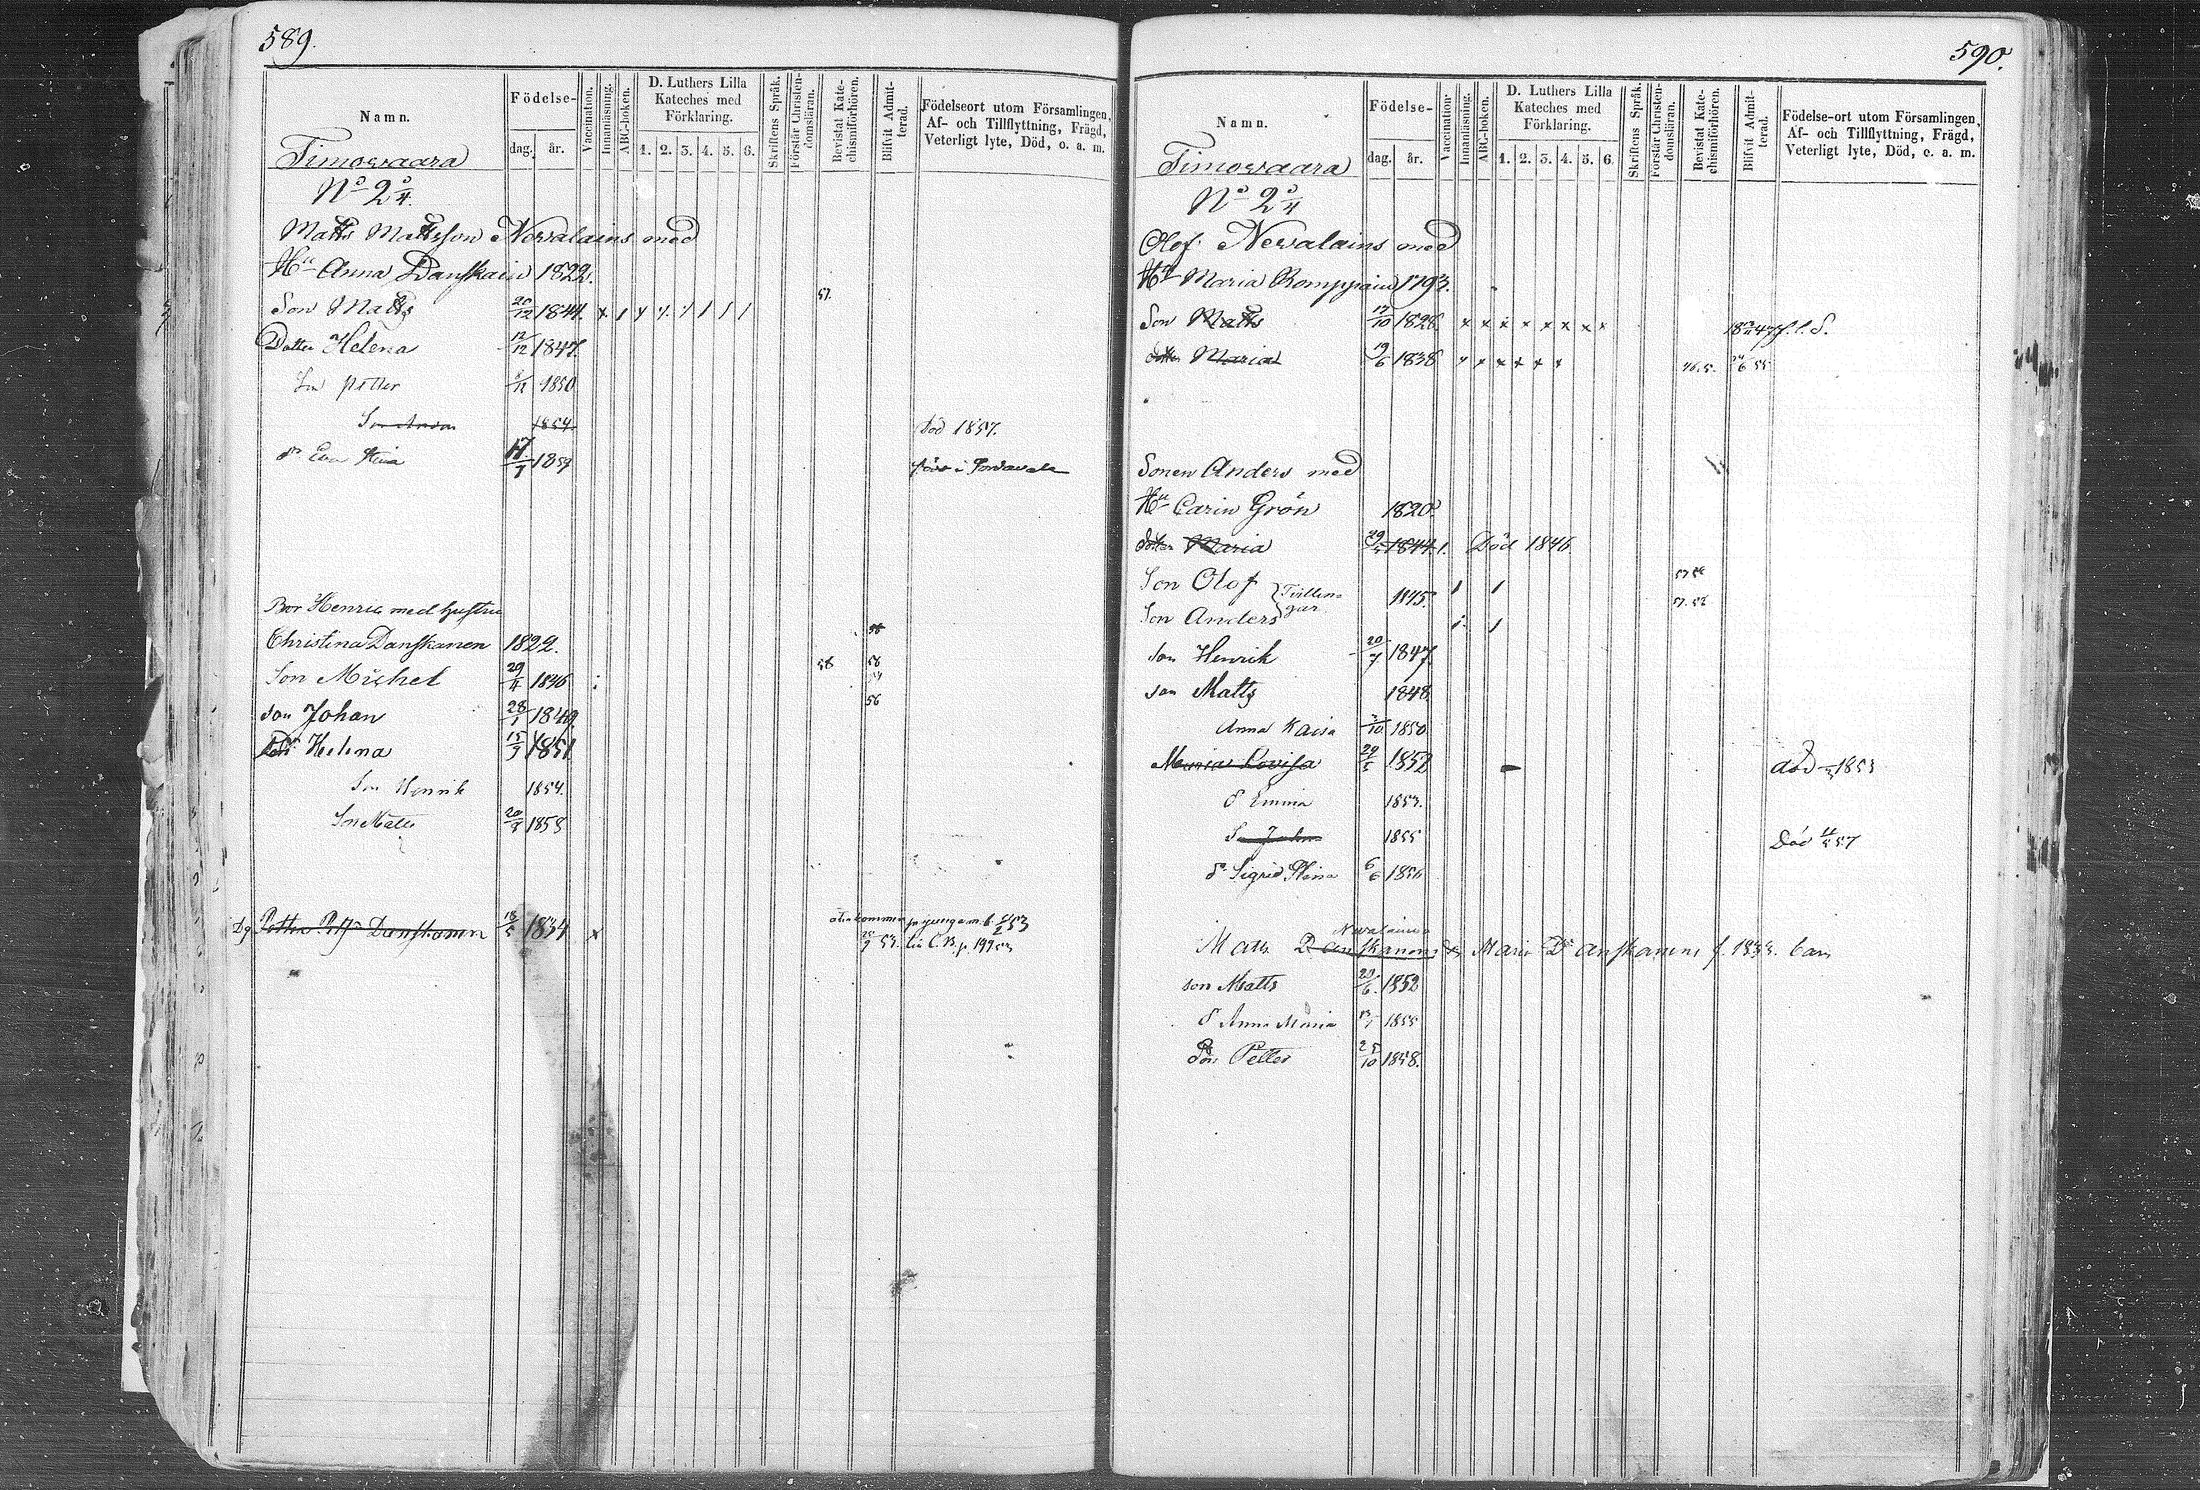 589.
Namn.
Födelse-
dag. år.
Vaccination.
Innanläsning.
ABC-boken.
D. Luthers Lilla
Kateches med
Förklaring.
1. 2. 3. 4. 5. 6.
Skriftens Språk.
Förstår Christen-
domsläran.
Bevistat Kate-
chismiförhören.
Blifvit Admit-
terad.
Födelseort utom Församlingen,
Af- och Tillflyttning, Frägd,
Veterligt lyte, Död, o. a. m.
Timovaara
No 2 3/4.
Matts Mattsson Nevalains med
Hu Anna Danskain 1822.
Son Matts 20/12 1844. 57.
Dotter Helena 12/12 1847.
Son Petter 8/12 1850
Son 1854 död 1857.
dr Eva Stina 17/7 1859
Bror Henric med hustru
Christina Danskanen 1822. 58
Son Michel 29/11 1846 58 58
son Johan 28/1 1849. 56
Helena 15/3 1851
Son Henrik 1854.
Son Matts 20/3 1858
Dg Petter Danskanen 18/5 1834 x
590.
Namn.
Födelse-
dag. år.
Vaccination
Innanläsning.
ABC-boken.
D. Luthers Lilla
Kateches med
Förklaring.
1. 2. 3. 4. 5. 6.
Skriftens Språk.
Förstår Christen-
domsläran.
Bevistat Kate-
chismiförhören.
Blifvit Admit-
terad.
Födelse-ort utom Församlingen,
Af- och Tillflyttning, Frägd,
Veterligt lyte, Död, o. a. m.
Timovaara
No 2 3/4
Olof Nevalains med
Hu Maria Romppain 1793.
Son Matts 17/10 1828. x x x x x x x x
dotter Maria 19/6 1838 x x x x x x 24/6 55
Sonen Anders med
Hu Carin Grön 1820.
dotter Maria 29/5 1844. 1. Död 1846
Son Olof } Tvillin-
gar 1845.
Son Anders
son Henrik 20/7 1847.
son Matts 1848
Anna Kaisa 2/10 1850
Maria Lovisa 29/5 1852 död 1853
d Emma 1853.
Son Johan 1855 Död 11/5 57
dr Sigrid Stina 6/6 1856
Nevalains
Matts Danskanens Maria Danskanens f. 1833. barn
son Matts 20/6. 1852
d Anna Maria 1855
Son Petter 25/10 1858.